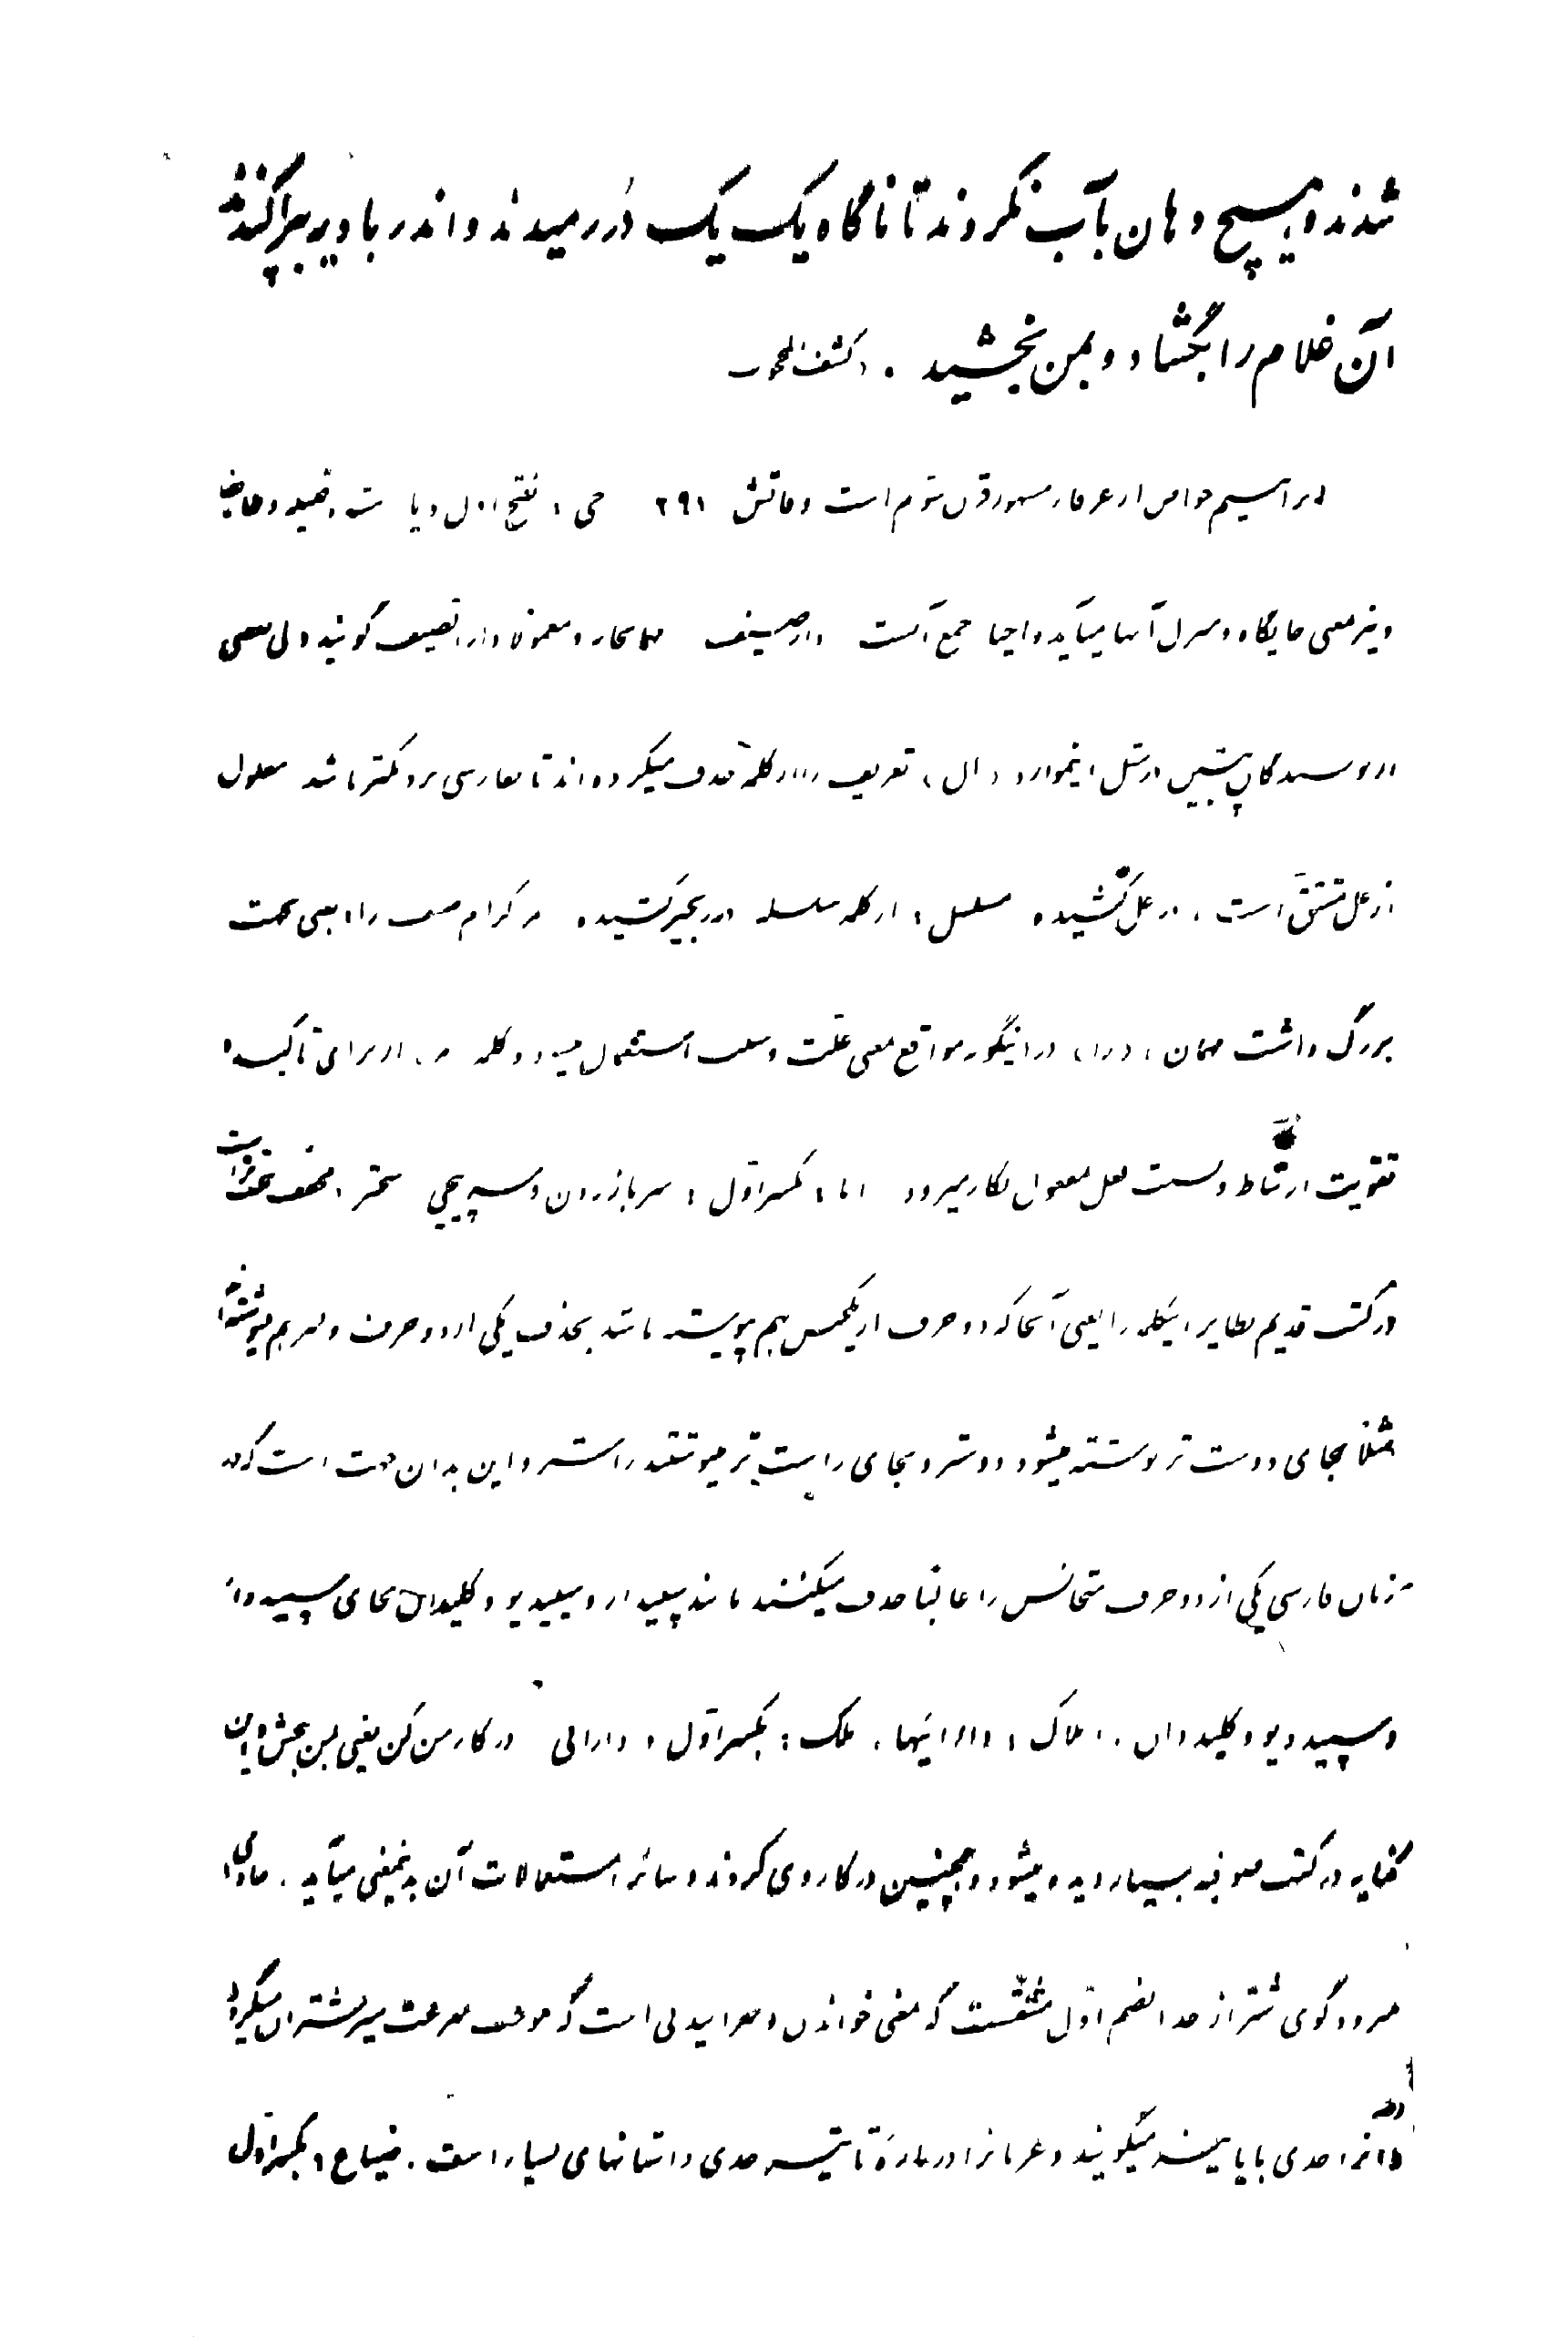 شدند و هیچ دهان بآب نکردند تا ناگاه یک یک در رمیدند و اندر بادیه پراکندند
آن غلام را بگشاد و بمن بخشید . (کشف المحجوب)
ابراهیم خواص از عرفاء مشهور قرن سوم است وفاتش ۲۹۱ حی : بفتح اول و یاء مشدد ، قبیله و طایفه
و نیز بمعنی جایگاه و منزل آنها میآید و احیا جمع آنست دار ضیف مهمانخانه و معمولا دارالضیف گویند ولی بعضی
از نویسندگان پیشین در مثل اینموارد (ال) تعریف را از کلمه حذف میکرده‌اند تا بفارسی نزدیکتر باشد مغلول
از غل مشتق است ، در غل کشیده مسلسل : از کلمه سلسله در زنجیر کشیده مر اکرام ضیف را : بجهت
بزرگ داشت مهمان ، (را) در اینگونه مواقع بمعنی علت و سبب استعمال میشود و کلمه مر ، از برای تاکید و
تقویت ارتباط و نسبت فعل بمفعول بکار میرود ابا : بکسر اول : سر باز زدن و سرپیچی سختر ، مخفف سخت‌تر است
در کتب قدیم نظایر اینکلمه را یعنی آنجا که دو حرف از یکجنس بهم پیوسته باشد بحذف یکی از دو حرف و سر هم مینوشته‌اند
مثلا بجای دوست تر نوشته میشود دوستر و بجای راست تر مینوشتند راستر و این بدان جهت است که در
زبان فارسی یکی از دو حرف متجانس را غالبا حذف میکنند مانند سپیدار و سپیدیو و کلیدان بجای سپید دار
و سپید دیو و کلید دان . املاک : داراییها ، ملک : بکسر اول ، دارائی در کار من کن یعنی بمن بخش و این
کنایه در کتب صوفیه بسیار دیده میشود و همچنین در کار وی کردند و سائر استعمالات آن بدینمعنی میآید . حادی :
سرود گوی شتر از حدا بضم اول مشتقست که بمعنی خواندن و سراییدنی است که موجب سرعت سیر شتران میگردد
و آنرا حدی با یاء نیز میگویند و عربانرا در باره تاثیر حدی داستانهای بسیار است . ضیاع : بکسر اول